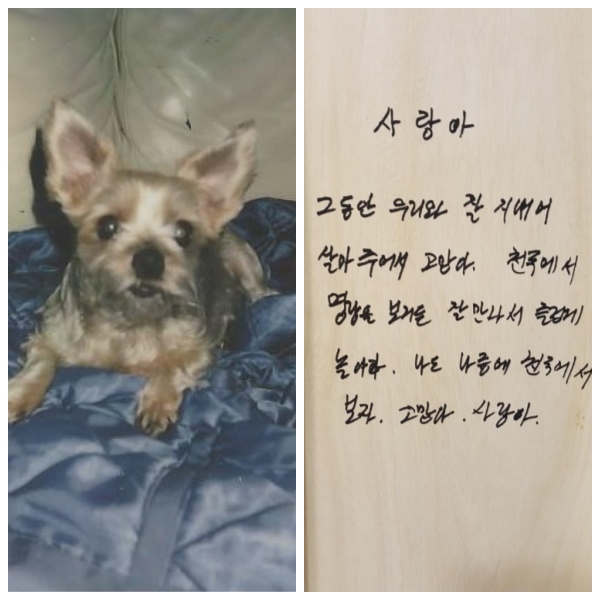 사랑아
그동안 우리와 잘 지내어
살아 주어서 고맙다. 천국에서
보리를 잘 만나서 즐겁게
놀아라. 나도 나중에 천국에서
보자. 고맙다. 사랑아.